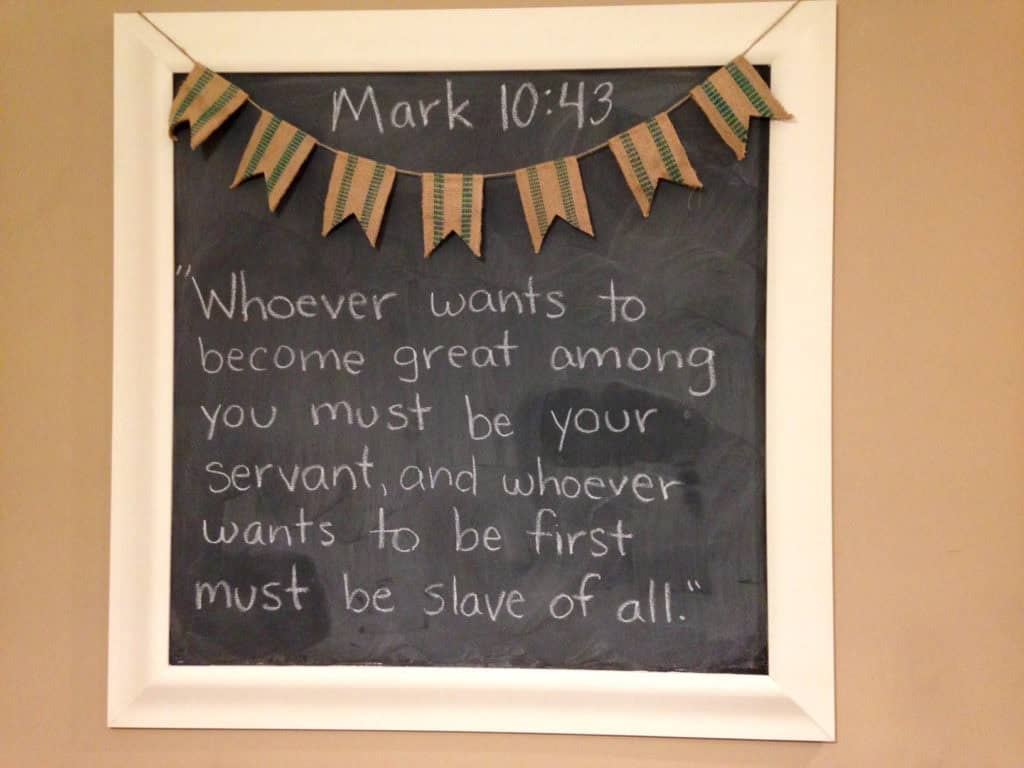 Mark 10:43
"Whoever wants to
become great among
you must be your
servant, and whoever
wants to be first
must be slave of all."